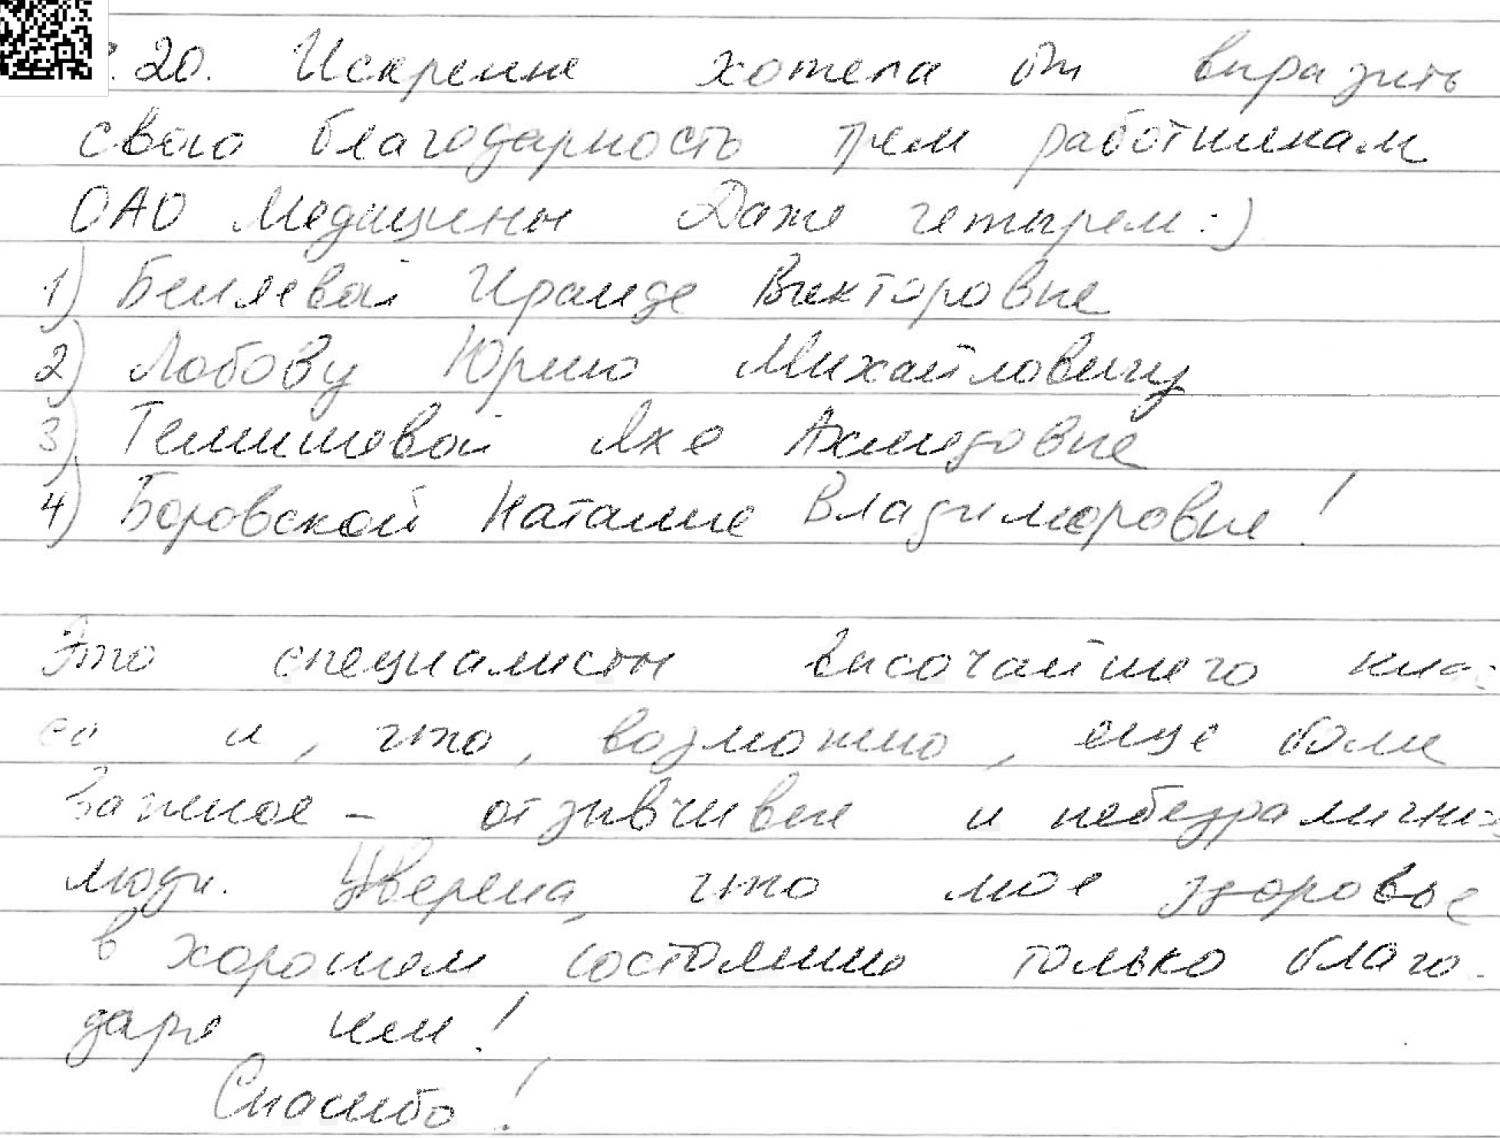 .20. Искренне хотела бы выразить
свою благодарность трем работникам
ОАО Медицины Даже четырем :)
1) Беляевой Ираиде Викторовне
2) Лобову Юрию Михайловичу
3) Темишевой Яхе Ахмедовне
4) Боровской Наталие Владимировне!
Это специалисты высочайшего клас
са и, что, возможно, еще более
важное - отзывчивые и небезразличные
люди. Уверена, что мое здоровье
в хорошем состоянии только благо-
даря им!
Спасибо!